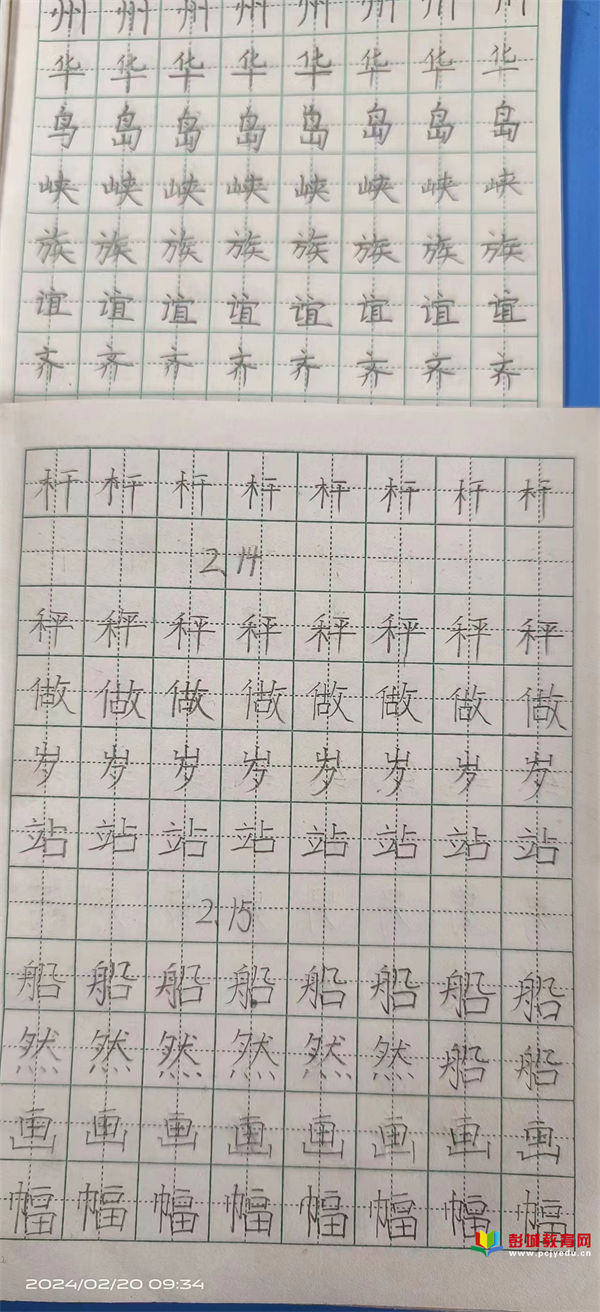 州 州 州 州 州 州 州 州
华 华 华 华 华 华 华 华
鸟 岛 岛 岛 岛 岛 岛 岛
峡 峡 峡 峡 峡 峡 峡 峡
族 族 族 族 族 族 族 族
谊 谊 谊 谊 谊 谊 谊 谊
齐 齐 齐 齐 齐 齐 齐 齐
杆 杆 杆 杆 杆 杆 杆 杆
2.14
秤 秤 秤 秤 秤 秤 秤 秤
做 做 做 做 做 做 做 做
岁 岁 岁 岁 岁 岁 岁 岁
站 站 站 站 站 站 站 站
2.15
船 船 船 船 船 船 船 船
然 然 然 然 然 然 船 船
画 画 画 画 画 画 画 画
幅 幅 幅 幅 幅 幅 幅 幅
彭城教育网
www.pcjyedu.cn
2024/02/20 09:34